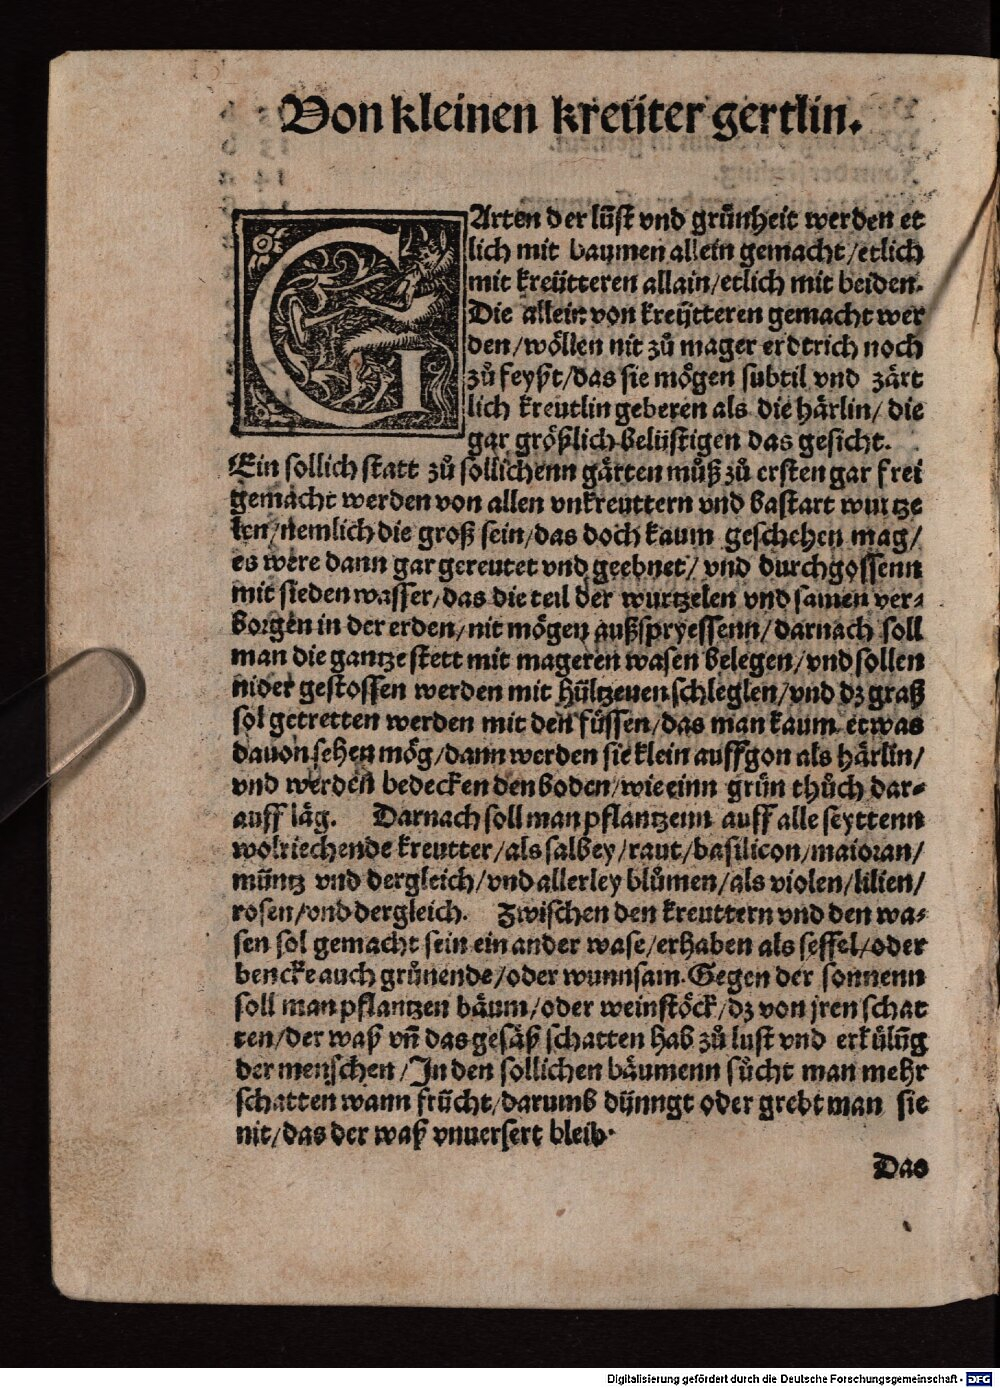 Von kleinen kreüter gertlin.
GArten der lüst vnd grünheit werden et
lich mit baumen allein gemacht/etlich
mit kreütteren allain/etlich mit beiden.
Die allein von kreütteren gemacht wer
den/wöllen nit zů mager erdtrich noch
zů feyßt/das sie mögen subtil vnd zärt
lich kreutlin geberen als die härlin/die
gar größlich belüstigen das gesicht.
Ein sollich statt zů sollichenn gärten můß zů ersten gar frei
gemacht werden von allen vnkreuttern vnd bastart wurtze
len/nemlich die groß sein/das doch kaum geschehen mag/
es were dann gar gereutet vnd geebnet/vnd durchgossenn
mit sieden wasser/das die teil der wurtzelen vnd samen ver⸗
borgen in der erden/nit mögen außspryessenn/darnach soll
man die gantze stett mit mageren wasen belegen/vnd sollen
nider gestossen werden mit hültzenen schleglen/vnd dz graß
sol getretten werden mit den füssen/das man kaum etwas
dauon sehen mög/dann werden sie klein auffgon als härlin/
vnd werden bedecken den boden/wie einn grün thůch dar⸗
auff läg. Darnach soll man pflantzenn auff alle seyttenn
wolriechende kreutter/als salbey/raut/basilicon/maioran/
müntz vnd dergleich/vnd allerley blůmen/als violen/lilien/
rosen/vnd dergleich. Zwischen den kreuttern vnd den wa⸗
sen sol gemacht sein ein ander wase/erhaben als seffel/oder
bencke auch grünende/oder wunnsam. Gegen der sonnenn
soll man pflantzen bäum/oder weinstöck/dz von jren schat
ten/der waß vñ das gesäß schatten hab zů lust vnd erkülũg
der menschen/In den sollichen bäumenn sůcht man mehr
schatten wann frücht/darumb dünngt oder grebt man sie
nit/das der waß vnuersert bleib.
Das
Digitalisierung gefördert durch die Deutsche Forschungsgemeinschaft - DFG